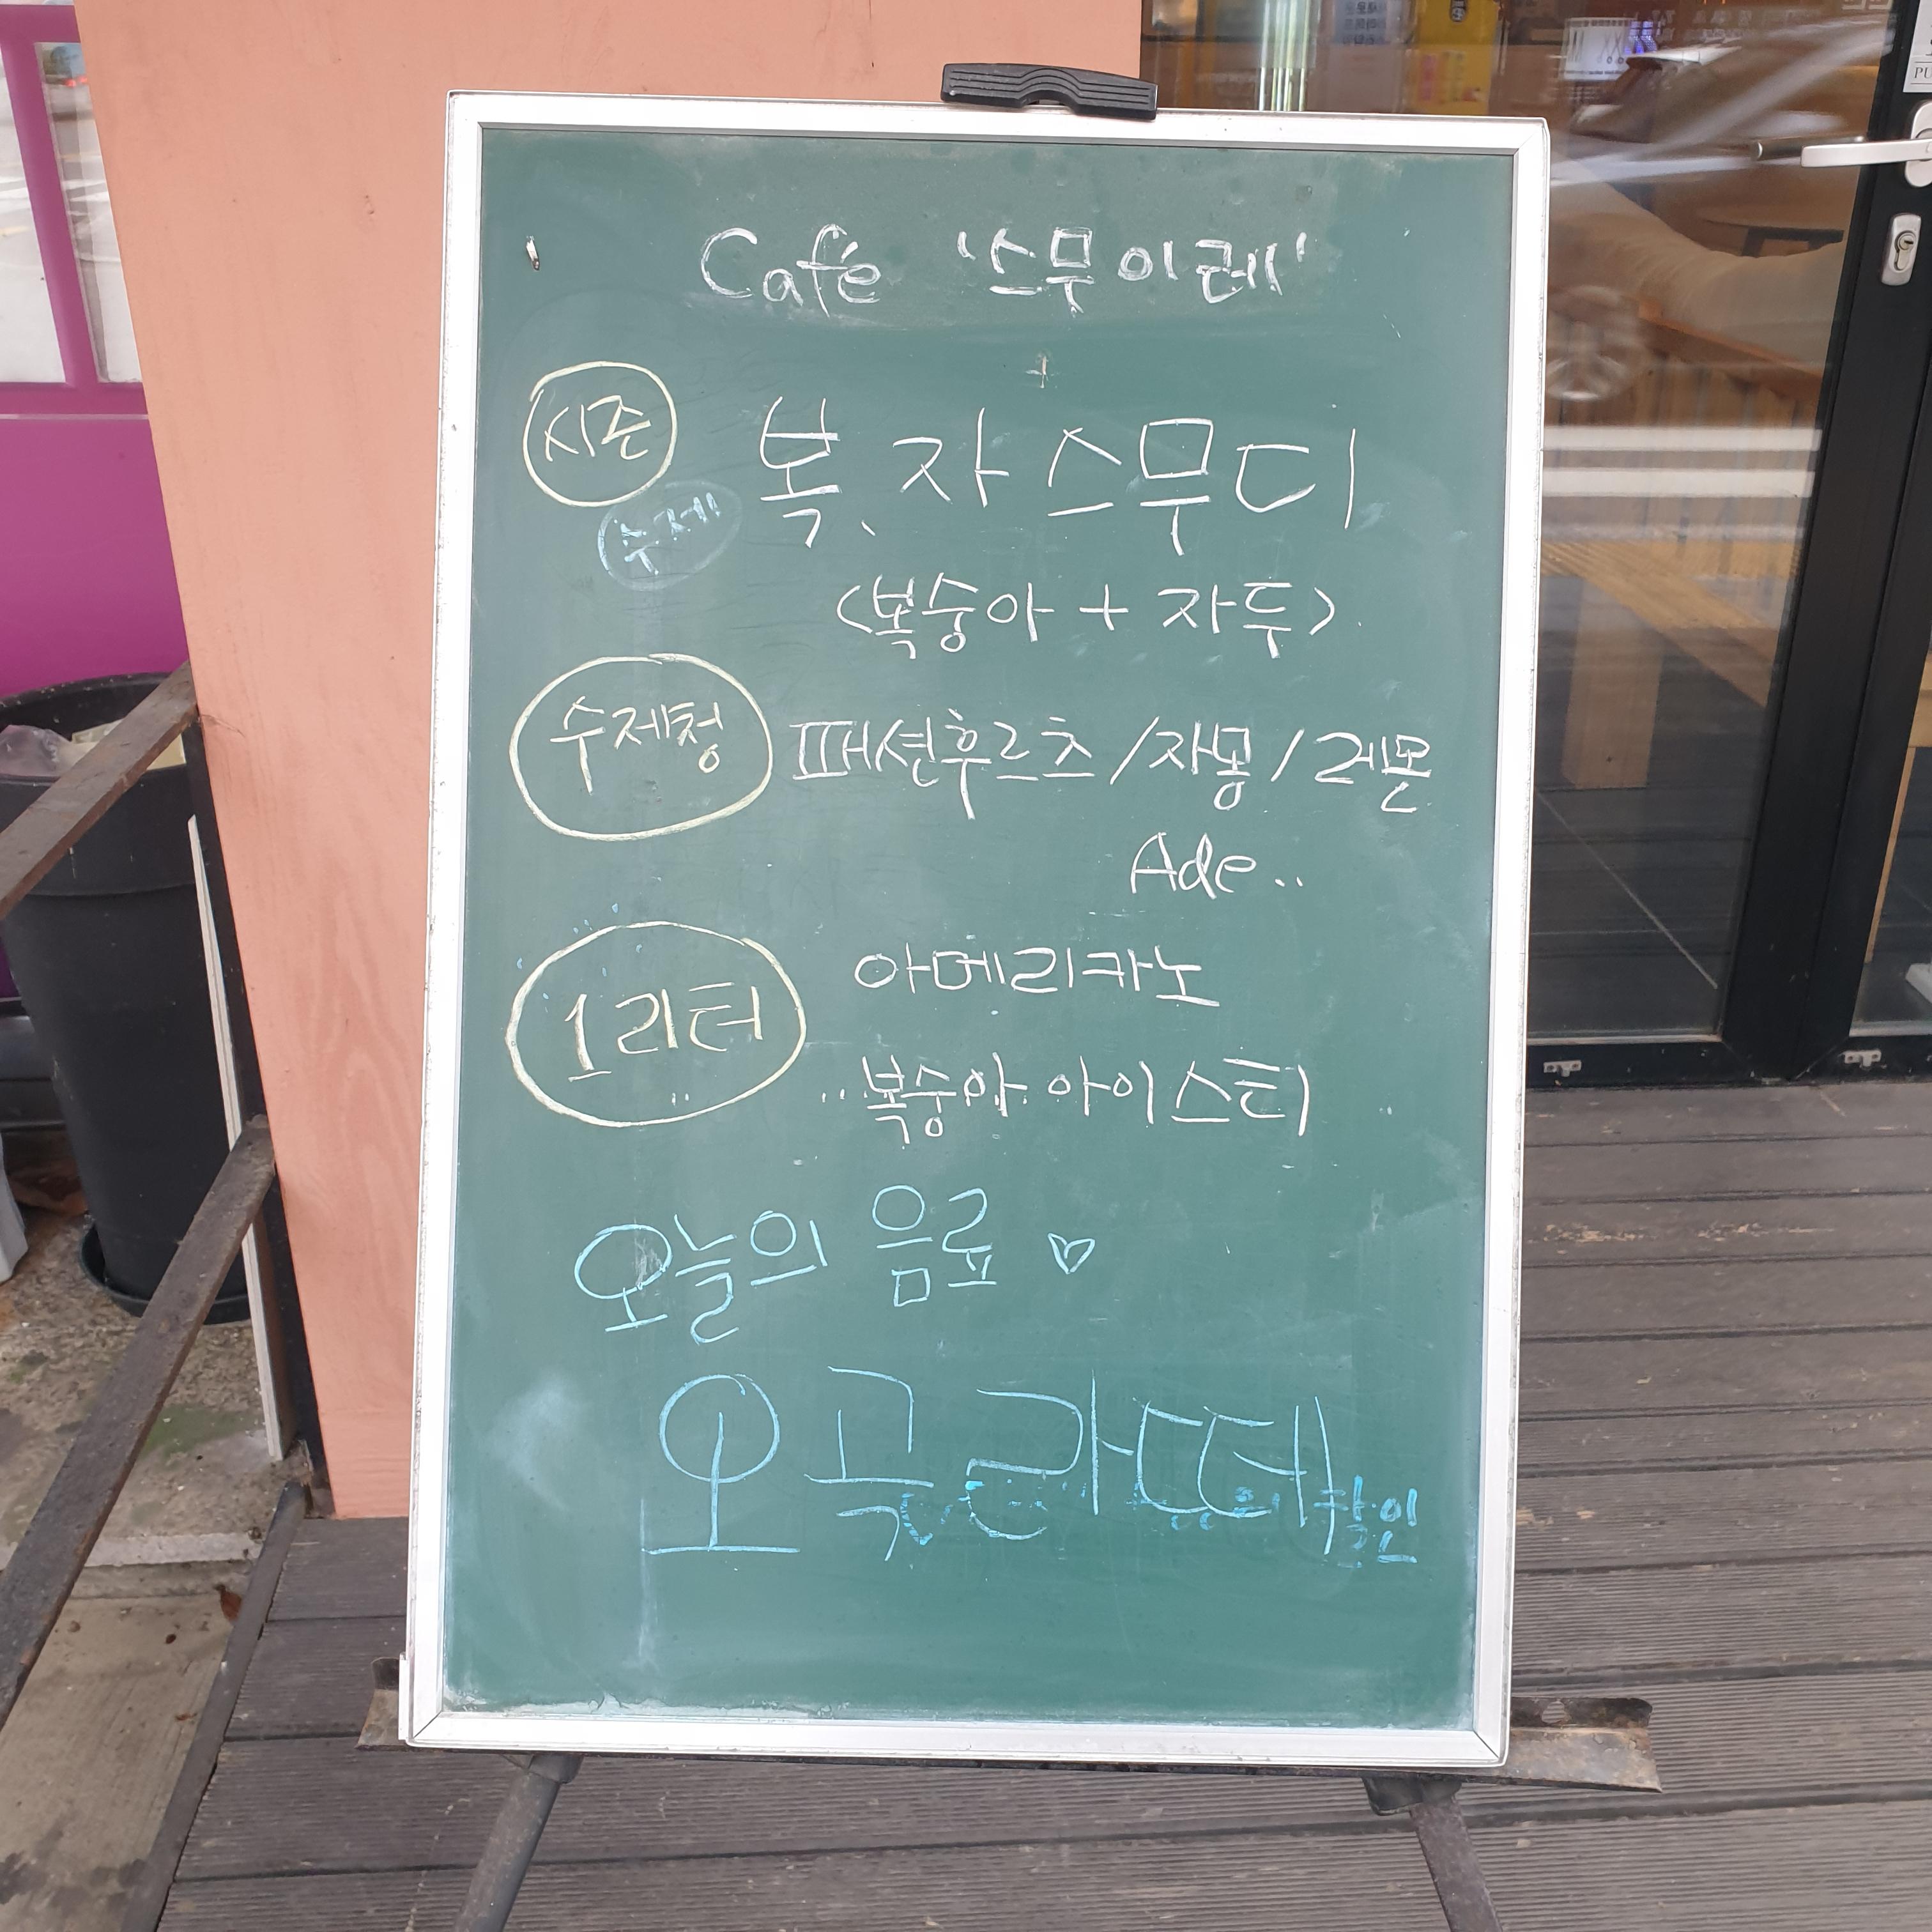 Café '스무이레'
시즌
수제
복、자스무디
<복숭아 + 자두>
수제청
패션후르츠 / 자몽 / 레몬
Ade..
1리터
아메리카노
복숭아 아이스티
오늘의 음료 ♡
오곡라떼 할인